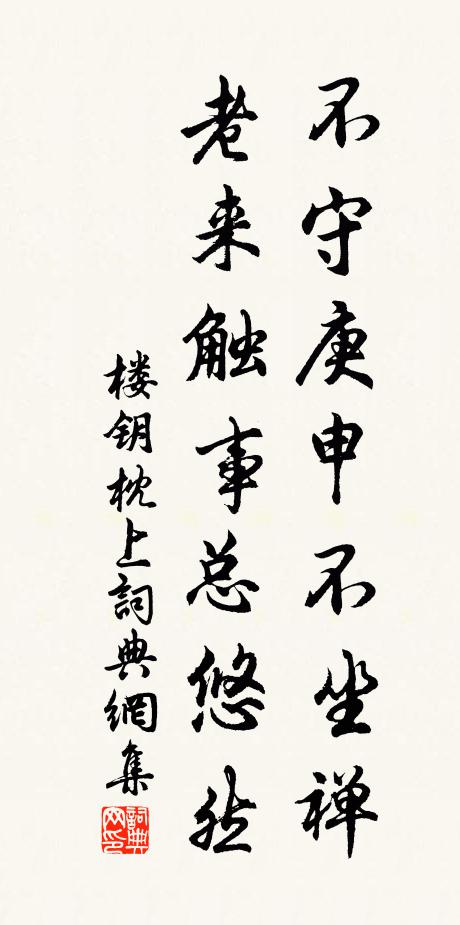 不守庚申不坐禅
老来触事总悠然
楼钥枕上詞典網集
詞典网印